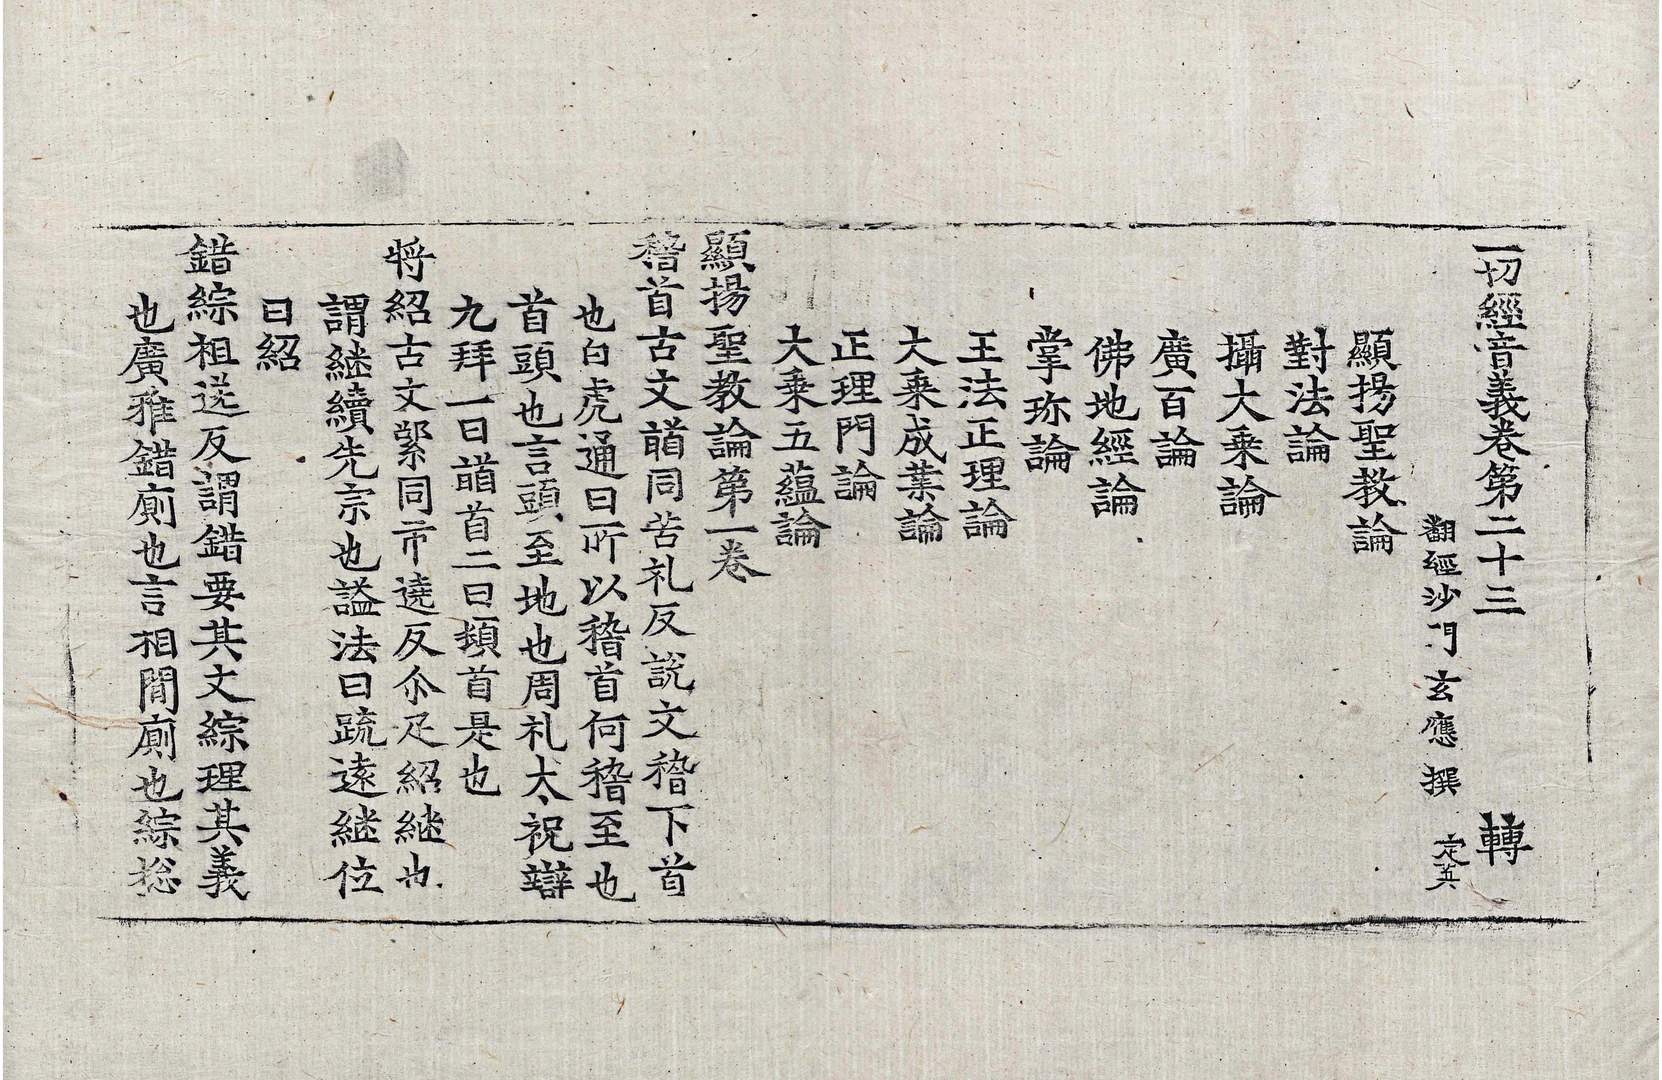 一切經音義卷第二十三　轉
翻經沙門玄應撰　定英
顯揚聖教論
對法論
攝大乘論
廣百論
佛地經論
掌珎論
王法正理論
大乘成業論
正理門論
大乘五蘊論
顯揚聖教論第一卷
稽首古文䭫同苦礼反說文稽下首
也白虎通曰所以稽首何稽至也
首頭也言頭至地也周礼大祝辯
九拜一曰䭫首二曰頓首是也
將紹古文綤同市遶反尒疋紹継也
謂継續先宗也謚法曰䟽遠継位
曰紹
錯綜祖送反謂錯要其文綜理其義
也廣雅錯廁也言相閒廁也綜捴